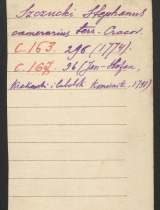 Szczucki Stephanus
camerarius terr. Cracov.
C. 163. 296 (1774).
C. 167. 96 (Jan-Stefan,
Krakowski i lubelsk. Komornik. 1781)